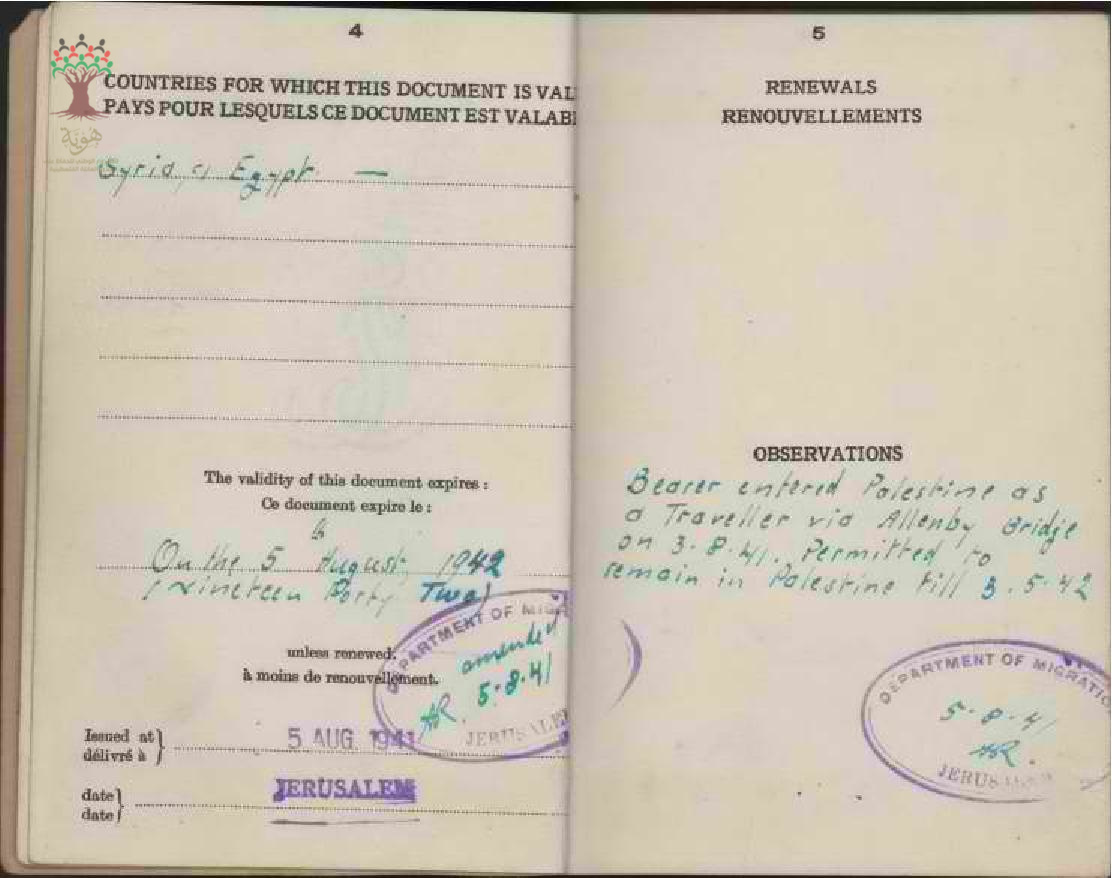 4
COUNTRIES FOR WHICH THIS DOCUMENT IS VAL
PAYS POUR LESQUELS CE DOCUMENT EST VALAB
هوية
Syria, Egypt —
The validity of this document expires :
Ce document expire le :
On the 5 August, 1942
(Nineteen Forty Two)
unless renewed.
à moins de renouvellement.
DEPARTMENT OF MIGRA
amended
5.8.41
AR.
JERUSALEM
Issued at
délivré à
5 AUG 1941
date
date
JERUSALEM
5
RENEWALS
RENOUVELLEMENTS
OBSERVATIONS
Bearer entered Palestine as
a Traveller via Allenby Bridge
on 3.8.41. Permitted to
remain in Palestine till 3.5.42
DEPARTMENT OF MIGRATIO
5-8-41
AR.
JERUSALEM